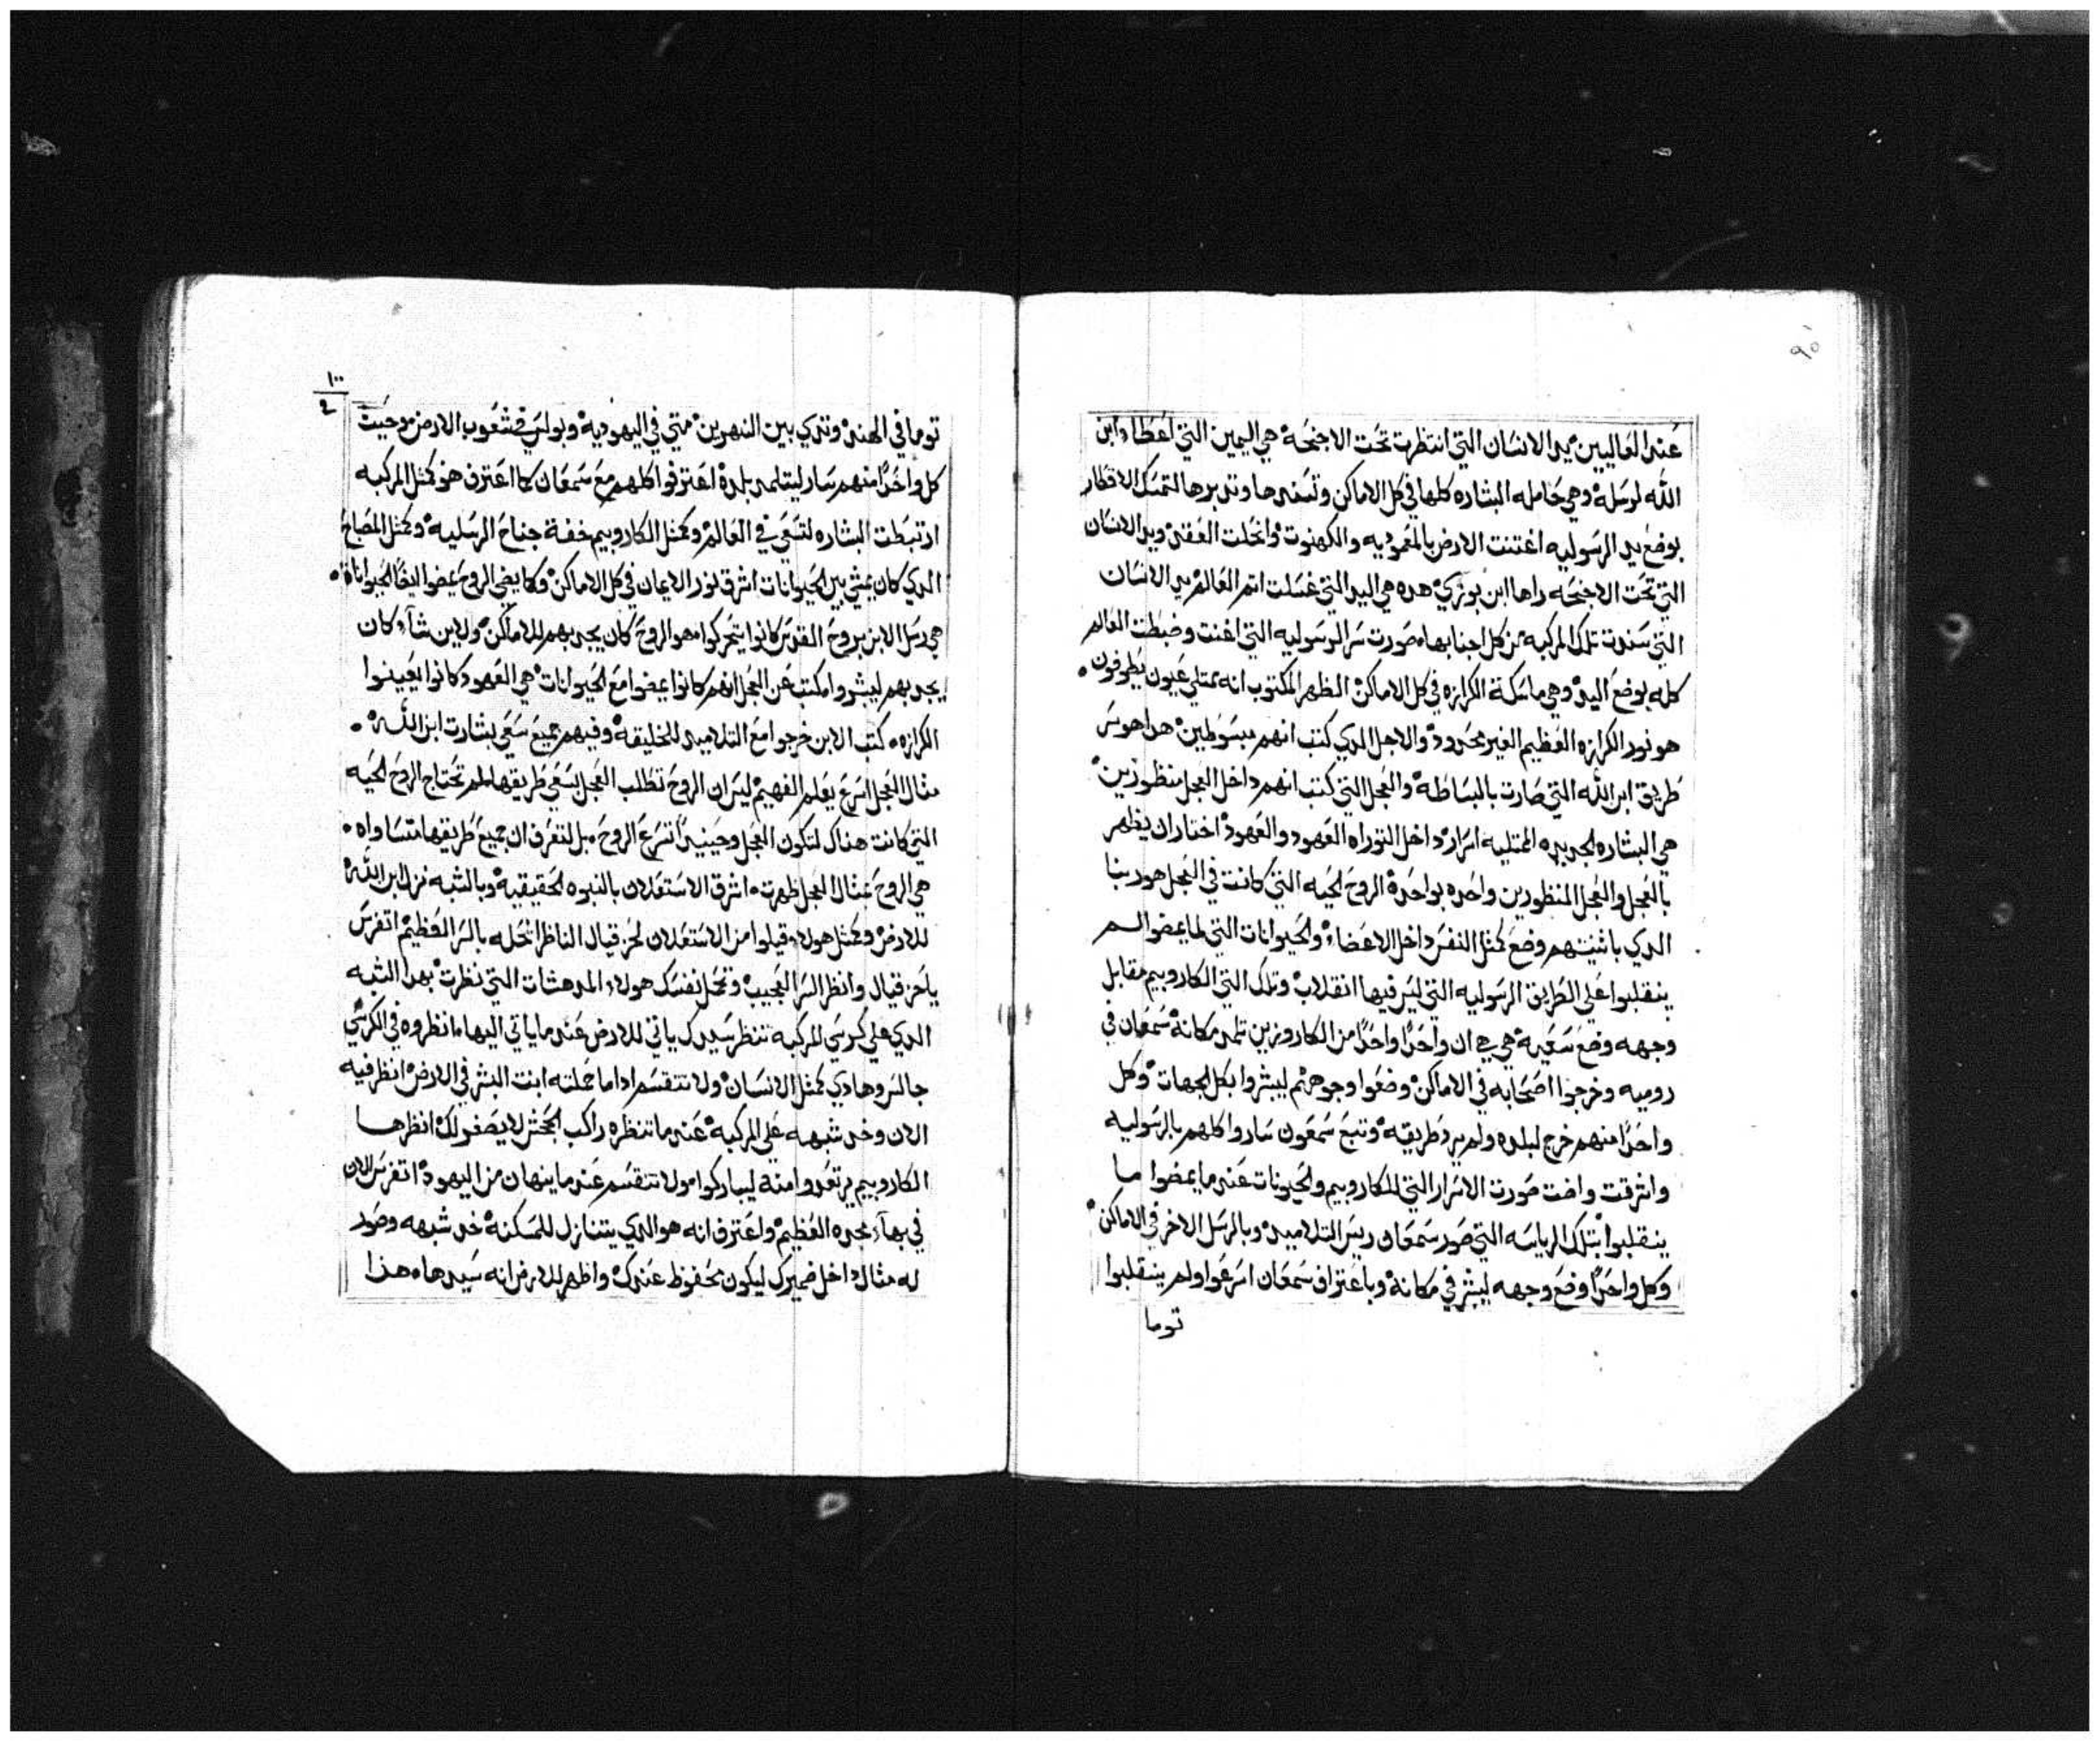 عند العاليين يد الانسان التي انتظرت تحت الاجنحة هي اليمين التي اعطاء ابن
الله لرسله وهي حامله البشاره كلها في كل الاماكن وتسندها وتدبرها لتمسك الاقطار
بوضع يد الرسوليه اغتنت الارض بالمعموديه والكهنوت وانحلت العقد ويد الانسان
التي تحت الاجنحه راها ابن بوزي هده هي اليد التي غسلت اتم العالم يد الانسان
التي سندت تلك المركبه من كل اجنابها صورت سر الرسوليه التي اغنت وضبطت العالم
كله بوضع اليد وهي ماسكة الكرازه في كل الاماكن الظهر المكتوب انه ممتلي عيون يطرفون
هو نور الكرازه العظيم الغير محدود والاجل الدي كتب انهم مبسوطين هدا هو سر
طريق ابن الله التي صارت بالبساطه والعجل التي كتب انهم داخل العجل منظورين
هي البشاره الجديده الممتليه اسرار داخل التوراه العهود والعهود اختار ان يظهر
بالعجل والعجل المنظورين واحده بواحدة الروح الحيه التي كانت في العجل هو ربنا
الدي باثنينهم وضع كمثل النفس داخل الاعضاء والحيوانات التي لما يمضوا لم
ينقلبوا على الطريق الرسوليه التي ليس فيها انقلاب وتلك التي الكاروبيم مقابل
وجهه وضع سعيه هي ان واحدًا واحدًا من الكاروزين تلمد مكانة سمعان في
روميه وخرجوا اصحابه في الاماكن وضعوا وجوههم ليبشروا بكل الجهات وكل
واحدًا منهم خرج لبلده ولم يرد طريقه وتبع سمعون ساروا كلهم بالرسوليه
واشرقت واضت صورت الاسرار التي للكاروبيم والحيونات عند ما يمضوا ما
ينقلبوا بتلك الرياسه التي صور سمعان ريس التلاميد وبالرسل الاخر في الاماكن
وكل واحدًا وضع وجهه ليبشر في مكانة وباعتراف سمعان اسرعوا ولم ينقلبوا
توما
١٠٠
توما في الهند وتدي بين النهرين متي في اليهوديه وبولس في شعوب الارض حيت
كل واحدًا منهم سار ليتلمد بلدة اعترفوا كلهم مع سمعان كما اعترف هو كمثل المركبه
ارتبطت البشاره لتسعي في العالم وكمثل الكاروبيم خفة جناح الرسليه وكمثل المصباح
الدي كان يمشي بين الحيوانات اشرق نور الايمان في كل الاماكن وكما يمضي الروح يمضوا ايضًا الحيوانات
هي رسل الابن بروح القدس كانوا يتحركوا هو الروح كان يجدبهم للاماكن ولاين شآء كان
يجدبهم ليبشروا مكتب عن العجل انهم كانوا يمضوا مع الحيوانات هي العهود كانوا يعينوا
الكرازه كتب الابن خرجوا مع التلاميد للخليقه وفيهم جميع سعي بشارت ابن الله
مثال العجل اسرع يعلم الفهيم ليس ان الروح تطلب العجل لتسعي طريقها لم تحتاج الروح الحيه
التي كانت هناك لتكون العجل وحينيدًا تسرع الروح بل لتعرف ان جميع طريقها متساواه
هي الروح بمثال العجل ظهرت اشرق الاستعلان بالنبوه الحقيقيه وبالشبه نزل ابن الله
للارض وكمثل هولاء قيلوا من الاستعلان لحزقيال الناظر اتحله بالسر العظيم اتفرس
ياحزقيال وانظر السر العجيب وتحل نفسك هولاء المدهشات التي نظرت بهدا الشبه
الدي علي كرسي المركبه تنتظر سيدك ياتي للارض عند ما ياتي اليها انظروه في الكرسي
جالس وهادي كمثل الانسان ولا تنقسم ادا ما حملته ابنت البشر في الارض انظر فيه
الان وخد شبهه علي المركبه عند ما تنظره راكب الجحش لا يصغر لك انظرها
الكاروبيم يرتعدوا منه ليباركوا ولا تنقسم عند ما ينهان من اليهود اتفرس الان
في بهآء مجده العظيم واعترف انه هو الدي يتنازل للمسكنه خد شبهه وصور
له مثال داخل ضميرك ليكون محفوظ عندك واظهر للارض انه سيدها هذا